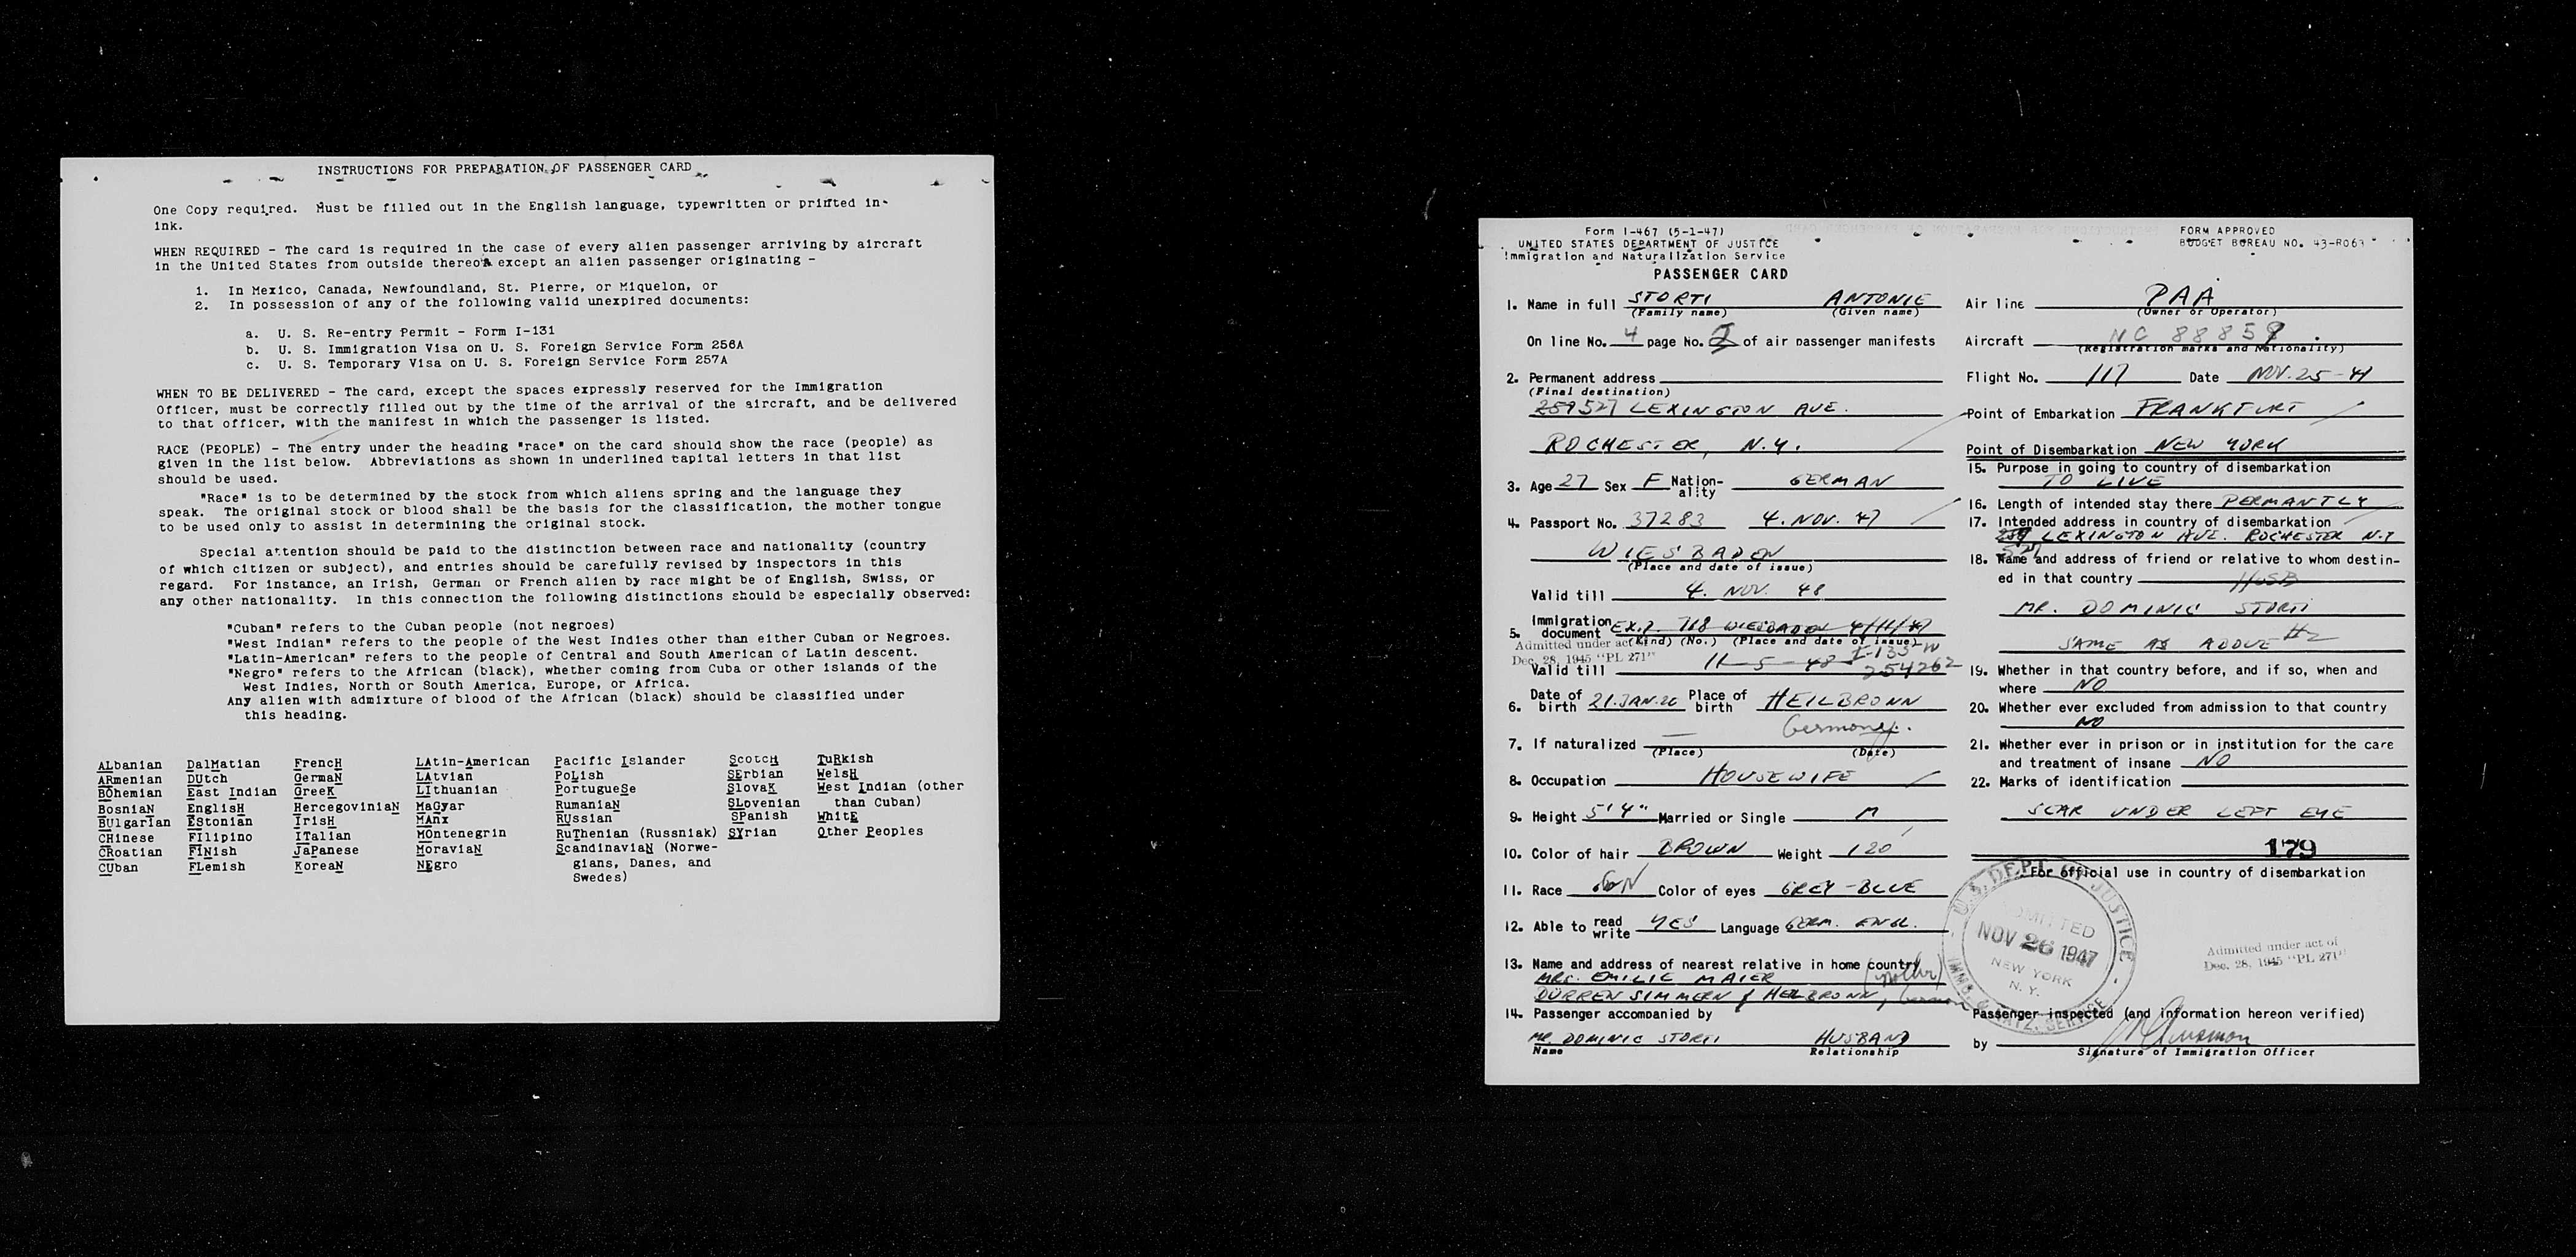 INSTRUCTIONS FOR PREPARATION OF PASSENGER CARD
One Copy required. Must be filled out in the English language, typewritten or printed in
ink.
WHEN REQUIRED - The card is required in the case of every alien passenger arriving by aircraft
in the United States from outside thereof except an alien passenger originating -
1. In Mexico, Canada, Newfoundland, St. Pierre, or Miquelon, or
2. In possession of any of the following valid unexpired documents:
a. U. S. Re-entry Permit - Form I-131
b. U. S. Immigration Visa on U. S. Foreign Service Form 256A
c. U. S. Temporary Visa on U. S. Foreign Service Form 257A
WHEN TO BE DELIVERED - The card, except the spaces expressly reserved for the Immigration
Officer, must be correctly filled out by the time of the arrival of the aircraft, and be delivered
to that officer, with the manifest in which the passenger is listed.
RACE (PEOPLE) - The entry under the heading "race" on the card should show the race (people) as
given in the list below. Abbreviations as shown in underlined capital letters in that list
should be used.
"Race" is to be determined by the stock from which aliens spring and the language they
speak. The original stock or blood shall be the basis for the classification, the mother tongue
to be used only to assist in determining the original stock.
Special attention should be paid to the distinction between race and nationality (country
of which citizen or subject), and entries should be carefully revised by inspectors in this
regard. For instance, an Irish, German or French alien by race might be of English, Swiss, or
any other nationality. In this connection the following distinctions should be especially observed:
"Cuban" refers to the Cuban people (not negroes)
"West Indian" refers to the people of the West Indies other than either Cuban or Negroes.
"Latin-American" refers to the people of Central and South American of Latin descent.
"Negro" refers to the African (black), whether coming from Cuba or other islands of the
West Indies, North or South America, Europe, or Africa.
Any alien with admixture of blood of the African (black) should be classified under
this heading.
ALbanian DalMatian FrencH LAtin-American Pacific Islander ScotcH TuRkish
ARmenian DUtch GermaN LAtvian PoLish SErbian WelsH
BOhemian East Indian GreeK LIthuanian PortugueSe SlovaK West Indian (other
BosniaN EnglisH HercegoviniaN MaGyar RumaniaN SLovenian than Cuban)
BUlgarIan EStonian IrisH MAnx RUssian SPanish WhitE
CHinese FIlipino ITalian MOntenegrin RuThenian (Russniak) SYrian Other Peoples
CRoatian FINish JaPanese MoraviaN ScandinaviaN (Norwe-
CUban FLemish KoreaN NEgro gians, Danes, and
Swedes)
Form I-467 (5-1-47)
UNITED STATES DEPARTMENT OF JUSTICE
Immigration and Naturalization Service
FORM APPROVED
BUDGET BUREAU NO. 43-R063
PASSENGER CARD
1. Name in full STORTI ANTONIE
(Family name) (Given name)
On line No. 4 page No. of air passenger manifests
2. Permanent address
(Final destination)
527 LEXINGTON AVE.
ROCHESTER, N.Y.
3. Age 27 Sex F Nation-ality GERMAN
4. Passport No. 37283 4. NOV. 47
WIESBADEN
(Place and date of issue)
Valid till 4. NOV. 48
5. Immigration document EX.P. 718 WIESBADEN 4/11/47
(Kind) (No.) (Place and date of issue)
Admitted under act
Dec. 28, 1945 "PL 271"
I-135 W
Valid till 11-5-48 254262
6. Date of birth 21.JAN.20 Place of birth HEILBRONN
Germany.
7. If naturalized —
(Place) (Date)
8. Occupation HOUSEWIFE
9. Height 5'4" Married or Single M
10. Color of hair BROWN Weight 120
11. Race Color of eyes GREY-BLUE
12. Able to read write YES Language GERM. ENGL.
13. Name and address of nearest relative in home country
MRS. EMILIE MAIER (mother)
DÜRRENZIMMERN / HEILBRONN, German
14. Passenger accompanied by
MR. DOMINIC STORTI HUSBAND
Name Relationship
Air line PAA
(Owner or Operator)
Aircraft NC 88859
(Registration marks and Nationality)
Flight No. 117 Date NOV.25-47
Point of Embarkation FRANKFURT
Point of Disembarkation NEW YORK
15. Purpose in going to country of disembarkation
TO LIVE
16. Length of intended stay there PERMANTLY
17. Intended address in country of disembarkation
527 LEXINGTON AVE. ROCHESTER N.Y
18. Name and address of friend or relative to whom destin-
ed in that country HUSB
MR. DOMINIC STORTI
SAME AS ABOVE #2
19. Whether in that country before, and if so, when and
where NO
20. Whether ever excluded from admission to that country
NO
21. Whether ever in prison or in institution for the care
and treatment of insane NO
22. Marks of identification
SCAR UNDER LEFT EYE
179
For official use in country of disembarkation
U.S. DEPT. OF JUSTICE
ADMITTED
NOV 26 1947
NEW YORK
N.Y.
IMMIG. & NATZ. SERVICE
Admitted under act of
Dec. 28, 1945 "PL 271"
Passenger inspected (and information hereon verified)
by
Signature of Immigration Officer